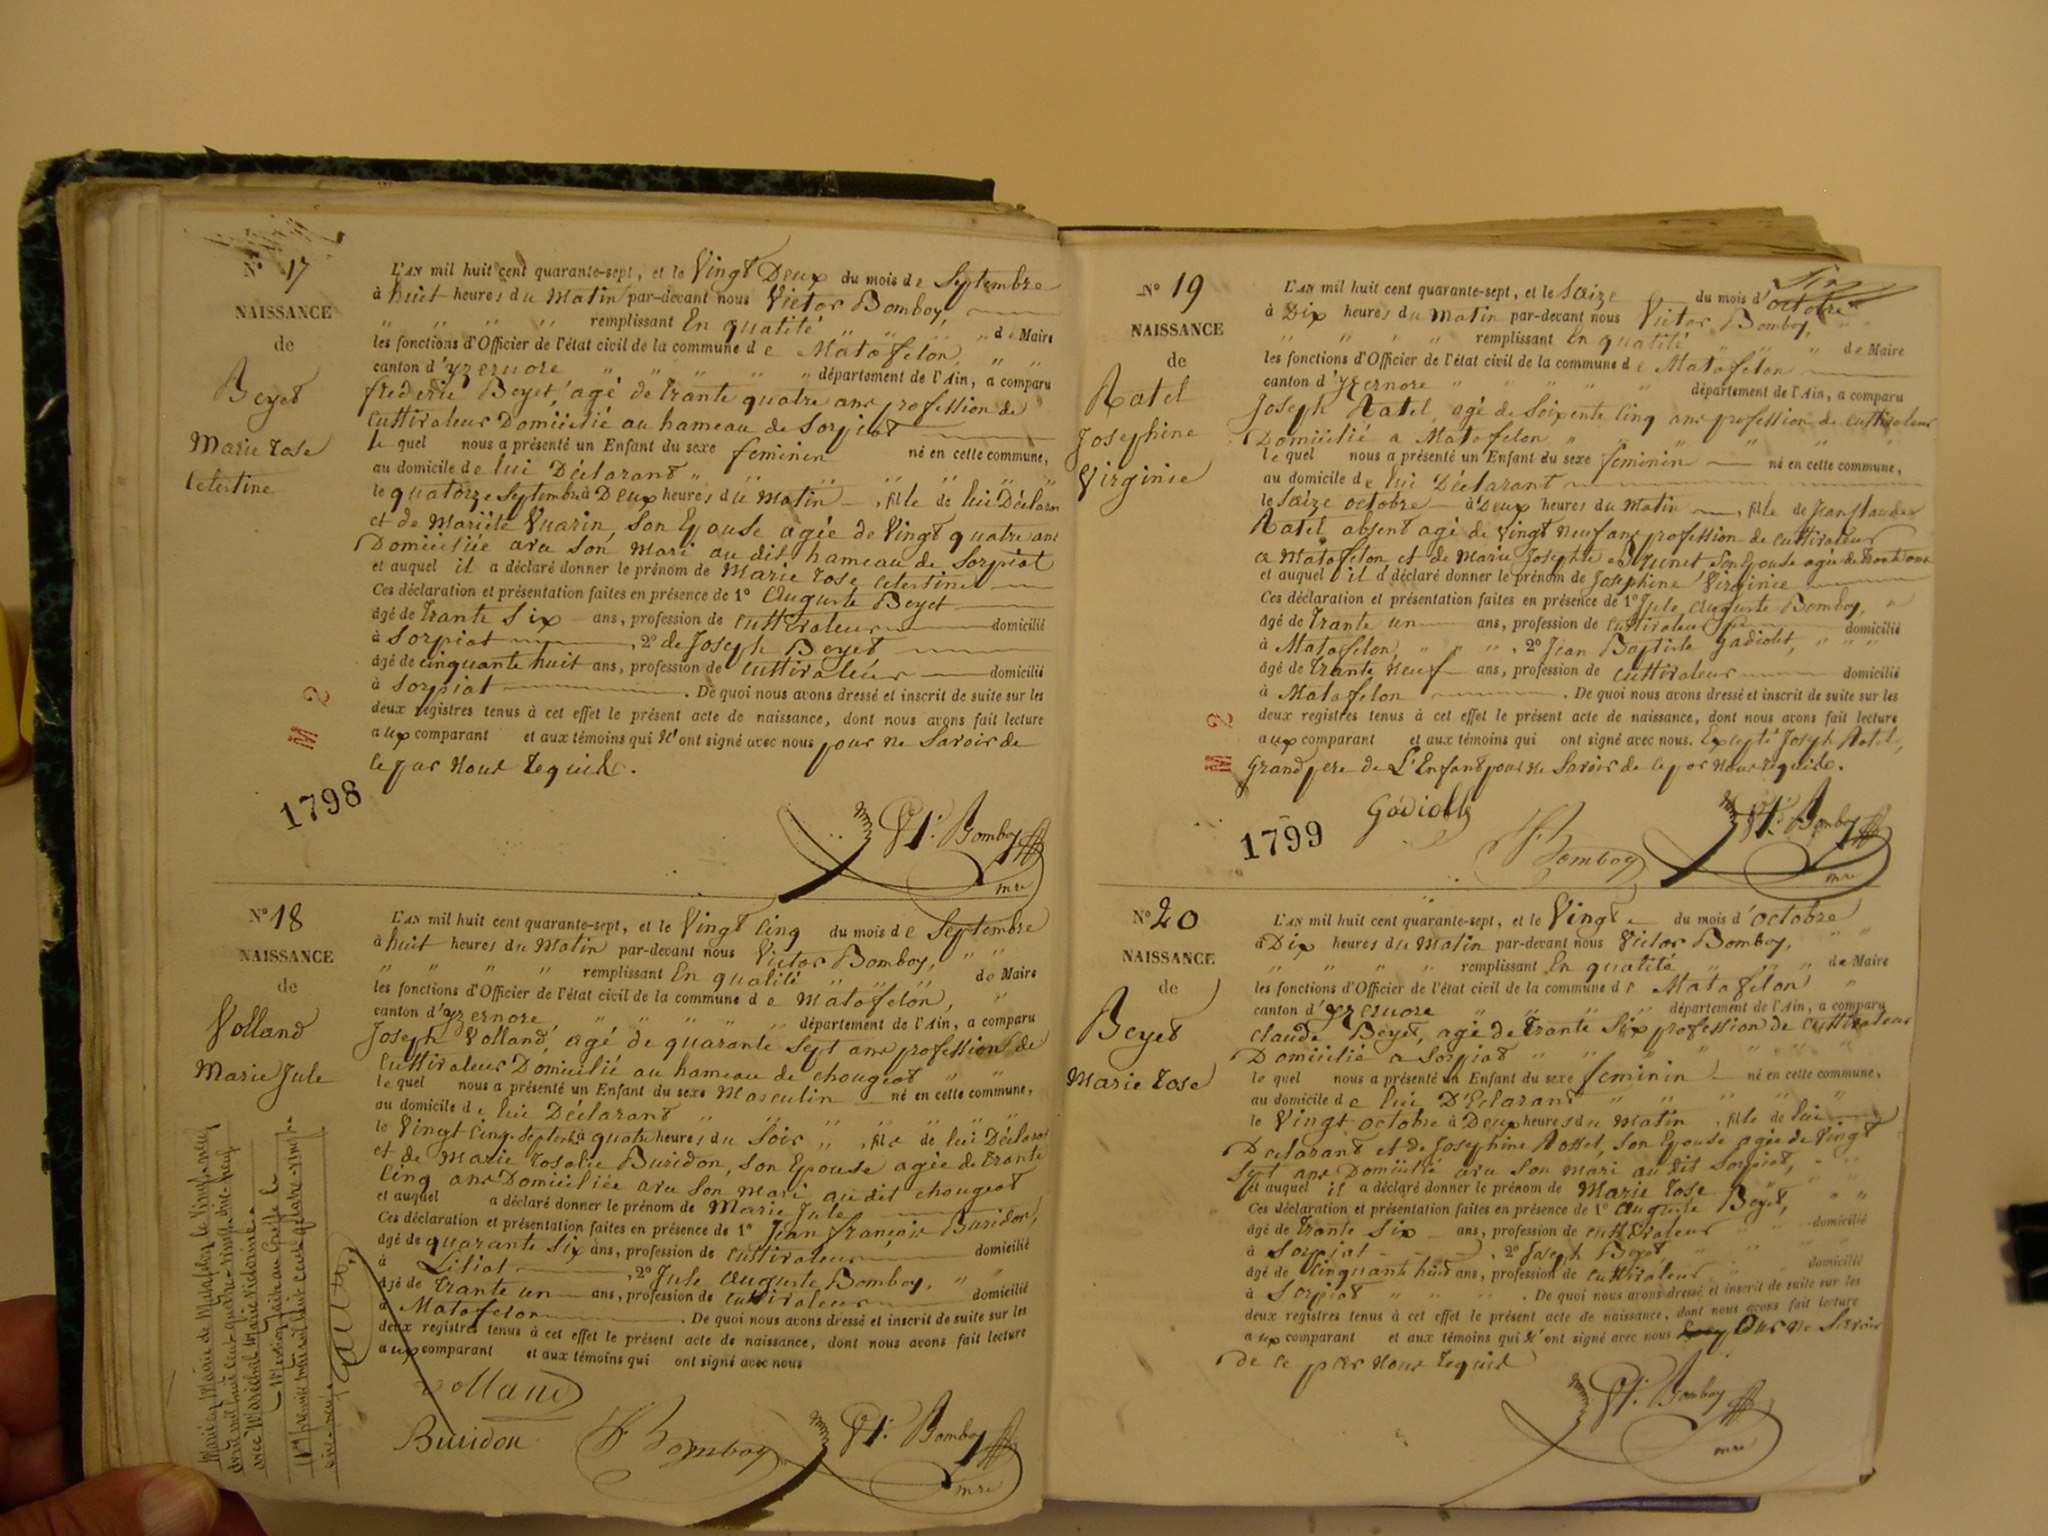 N° 17
NAISSANCE
de
Beyet
Marie rose
Celestine
L'AN mil huit cent quarante-sept, et le Vingt Deux du mois de Septembre
à huit heures du Matin par-devant nous Victor Bomboy
remplissant En qualité de Maire
les fonctions d'Officier de l'état civil de la commune de Matafelon
canton d'yzernore département de l'Ain, a comparu
frederic Beyet, agé de trante quatre ans profession de
Cuttivateur Domicilié au hameau de Sorpiat
le quel nous a présenté un Enfant du sexe feminin né en cette commune,
au domicile de lui Déclarant
le quatorze Septembre à Deux heures du matin, fille de lui Déclarant
et de Mariete Vuarin, Son Epouse agée de Vingt quatre ans
Domiciliée avec Son mari au dit hameau de Sorpiat
et auquel il a déclaré donner le prénom de Marie rose celestine
Ces déclaration et présentation faites en présence de 1° Auguste Beyet
âgé de trante Six ans, profession de cuttivateur domicilié
à Sorpiat, 2° de Joseph Beyet
âgé de cinquante huit ans, profession de cuttivateur domicilié
à Sorpiat. De quoi nous avons dressé et inscrit de suite sur les
deux registres tenus à cet effet le présent acte de naissance, dont nous avons fait lecture
aux comparant et aux témoins qui N'ont signé avec nous pour ne Savoir de
ce par nous requis.
M 2
1798
Vr. Bomboy
mre
N° 18
NAISSANCE
de
Volland
Marie Jule
L'AN mil huit cent quarante-sept, et le Vingt Cinq du mois de Septembre
à huit heures du Matin par-devant nous Victor Bomboy,
remplissant En qualité de Maire
les fonctions d'Officier de l'état civil de la commune de Matafelon,
canton d'yzernore département de l'Ain, a comparu
Joseph Volland, agé de quarante Sept ans profession de
Cuttivateur Domicilié au hameau de chougeat
le quel nous a présenté un Enfant du sexe Masculin né en cette commune,
au domicile de lui Déclarant
le Vingt Cinq Septembre à quatre heures du Soir, fils de lui Déclarant
et de Marie rosalie Buridon, Son Epouse agée de trante
Cinq ans Domiciliée avec Son mari au dit chougeat
et auquel a déclaré donner le prénom de Marie Jule
Ces déclaration et présentation faites en présence de 1° Jean françois Buridon,
âgé de quarante Six ans, profession de cuttivateur domicilié
à Liliat, 2° Jule Auguste Bomboy,
âgé de trante un ans, profession de cuttivateur domicilié
à Matafelon. De quoi nous avons dressé et inscrit de suite sur les
deux registres tenus à cet effet le présent acte de naissance, dont nous avons fait lecture
aux comparant et aux témoins qui ont signé avec nous
Marié à la Mairie de Matafelon le Vingt neuf
avril mil huit cent quatre-vingt-dix-neuf
avec Maréchal Marie Victorine
Volland
Buridon
Bomboy
Vr. Bomboy
mre
N° 19
NAISSANCE
de
Ratel
Josephine
Virginie
L'AN mil huit cent quarante-sept, et le Saize du mois d'octobre
à Dix heures du Matin par-devant nous Victor Bomboy,
remplissant En qualité de Maire
les fonctions d'Officier de l'état civil de la commune de Matafelon
canton d'yzernore département de l'Ain, a comparu
Joseph Ratel, agé de Soixente Cinq ans profession de cuttivateur
Domicilié a Matafelon
le quel nous a présenté un Enfant du sexe feminin né en cette commune,
au domicile de lui Déclarant
le Saize octobre à Deux heures du Matin, fille de Jean Claude
Ratel absent agé de Vingt neuf ans profession de cuttivateur
a Matafelon et de Marie Josephte Son Epouse agée de
et auquel il a déclaré donner le prénom de Josephine Virginie
Ces déclaration et présentation faites en présence de 1° Jule Auguste Bomboy,
âgé de trante un ans, profession de cuttivateur domicilié
à Matafelon, 2° Jean Baptiste gadiolet,
âgé de trante neuf ans, profession de cuttivateur domicilié
à Matafelon. De quoi nous avons dressé et inscrit de suite sur les
deux registres tenus à cet effet le présent acte de naissance, dont nous avons fait lecture
aux comparant et aux témoins qui ont signé avec nous. Excepté Joseph Ratel,
grand pere de L'Enfant pour ne Savoir de ce par nous requis.
M 2
1799
Bomboy
Vr. Bomboy
mre
N° 20
NAISSANCE
de
Beyet
Marie rose
L'AN mil huit cent quarante-sept, et le Vingt du mois d'octobre
à Dix heures du Matin par-devant nous Victor Bomboy,
remplissant En qualité de Maire
les fonctions d'Officier de l'état civil de la commune de Matafelon
canton d'yzernore département de l'Ain, a comparu
claude Beyet, agé de trante Six profession de cuttivateur
Domicilié a Sorpiat
le quel nous a présenté un Enfant du sexe feminin né en cette commune,
au domicile de lui D'Eclarant
le Vingt octobre à Deux heures du Matin, fille de lui
Declarant et de Josephine Rossel, Son Epouse agée de Vingt
Sept ans Domicilié avec Son mari au dit Sorpiat,
et auquel il a déclaré donner le prénom de Marie rose
Ces déclaration et présentation faites en présence de 1° Auguste Beyet,
âgé de trante Six ans, profession de cuttivateur domicilié
à Sorpiat, 2° Joseph Beyet
âgé de Cinquante huit ans, profession de cuttivateur domicilié
à Sorpiat. De quoi nous avons dressé et inscrit de suite sur les
deux registres tenus à cet effet le présent acte de naissance, dont nous avons fait lecture
aux comparant et aux témoins qui N'ont signé avec nous Pour ne Savoir
de ce par nous requis
Vr. Bomboy
mre